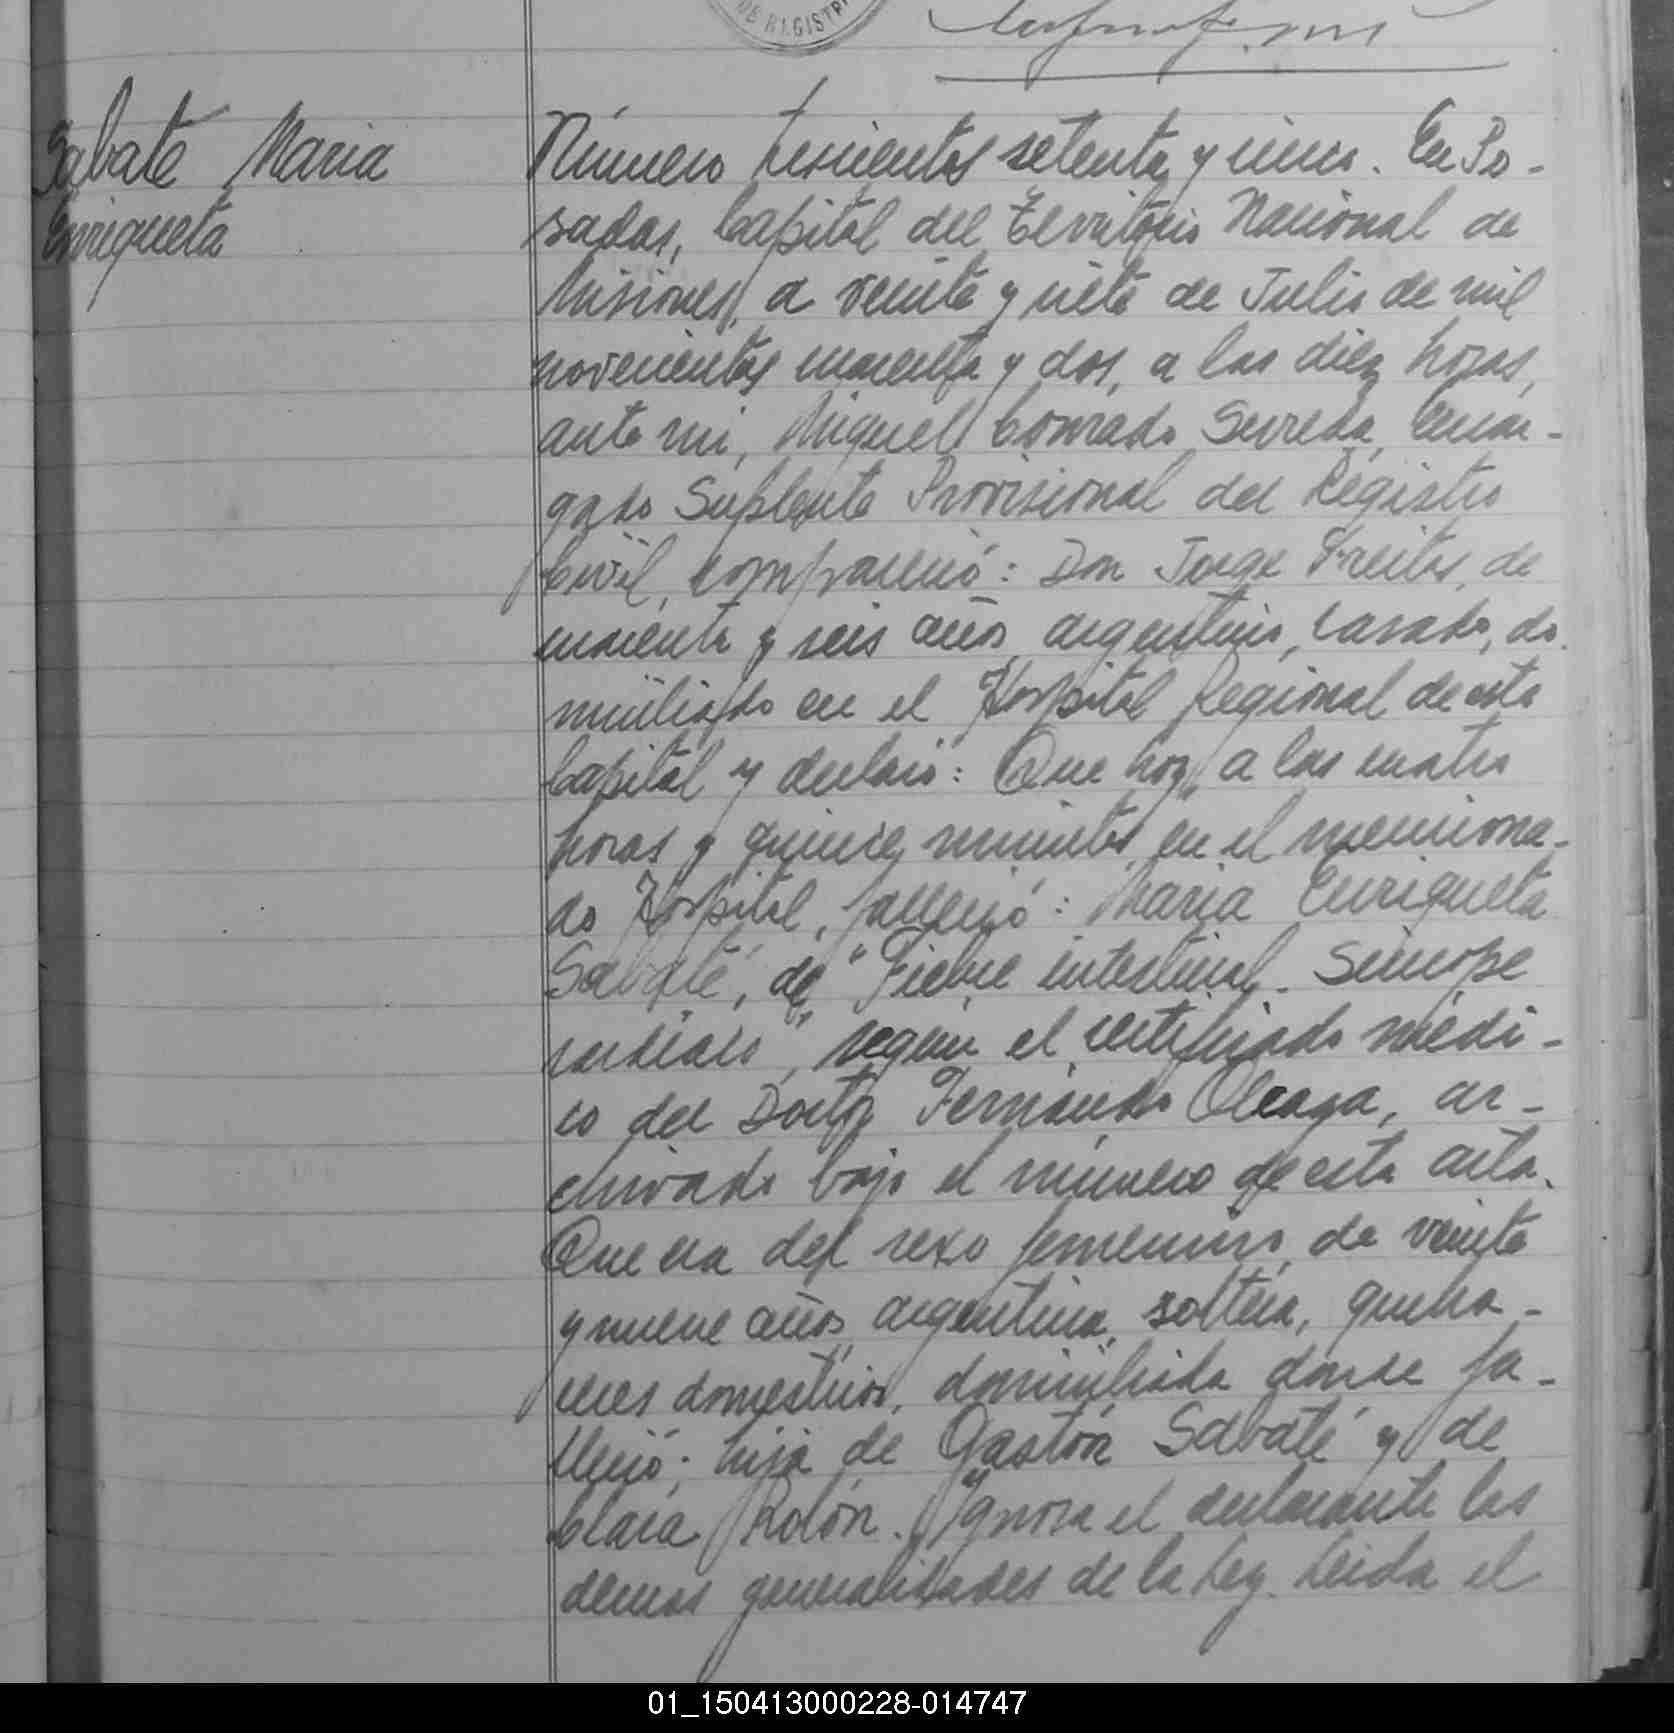 DE REGISTR
Sabaté María
Enriqueta
Número trescientos setenta y cinco. En Po-
sadas, Capital del Territorio Nacional de
Misiones, a veinte y siete de Julio de mil
novecientos cuarenta y dos, a las diez horas,
ante mi, Miguel Conrado Sureda, Encar-
gado Suplente Provisional del Registro
Civil, compareció: Don Jorge Freitas, de
cuarenta y seis años, argentino, casado, do-
miciliado en el Hospital Regional de esta
Capital y declaró: Que hoy, a las cuatro
horas y quince minutos, en el menciona-
do Hospital, falleció: María Enriqueta
Sabaté, de "Fiebre intestinal. Sincope
cardiaco", según el certificado médi-
co del Doctor Fernando Oleaga, ar-
chivado bajo el número de esta acta.
Que era del sexo femenino, de veinte
y nueve años, argentina, soltera, queha-
ceres domesticos, domiciliada donde fa-
lleció; hija de Gastón Sabaté y de
Clara Rolón. Ignora el declarante las
demas generalidades de la Ley. Leida el
01_150413000228-014747